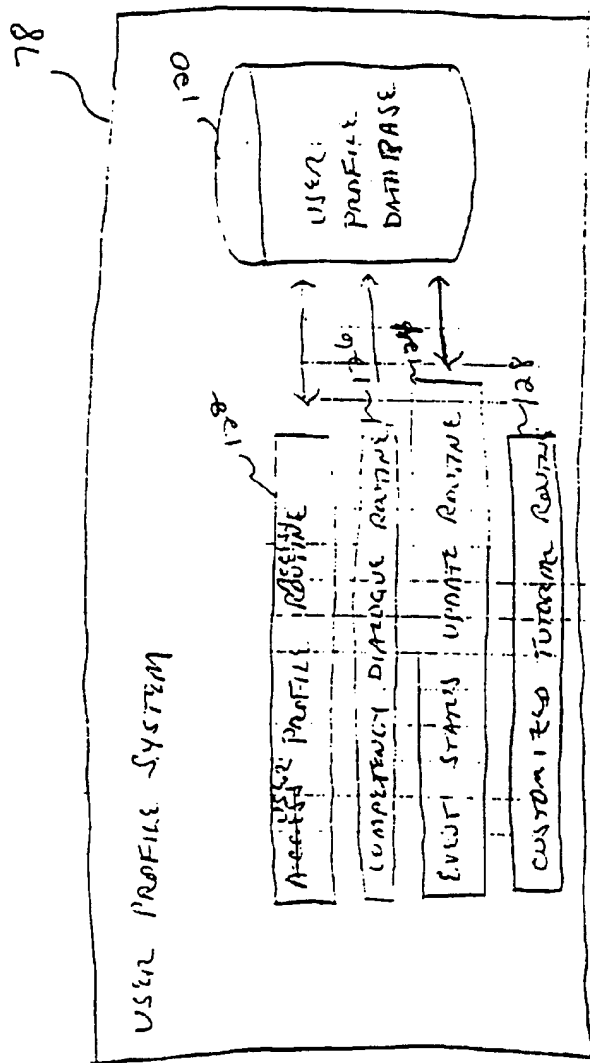 78
USER PROFILE SYSTEM
120
USER
PROFILE
DATABASE
USER ACCESS
ACCESS PROFILE ROUTINE
126
COMPETENCY DIALOGUE ROUTINE
124
EVENT STATUS UPDATE ROUTINE
128
CUSTOMIZED TUTORIAL ROUTINE